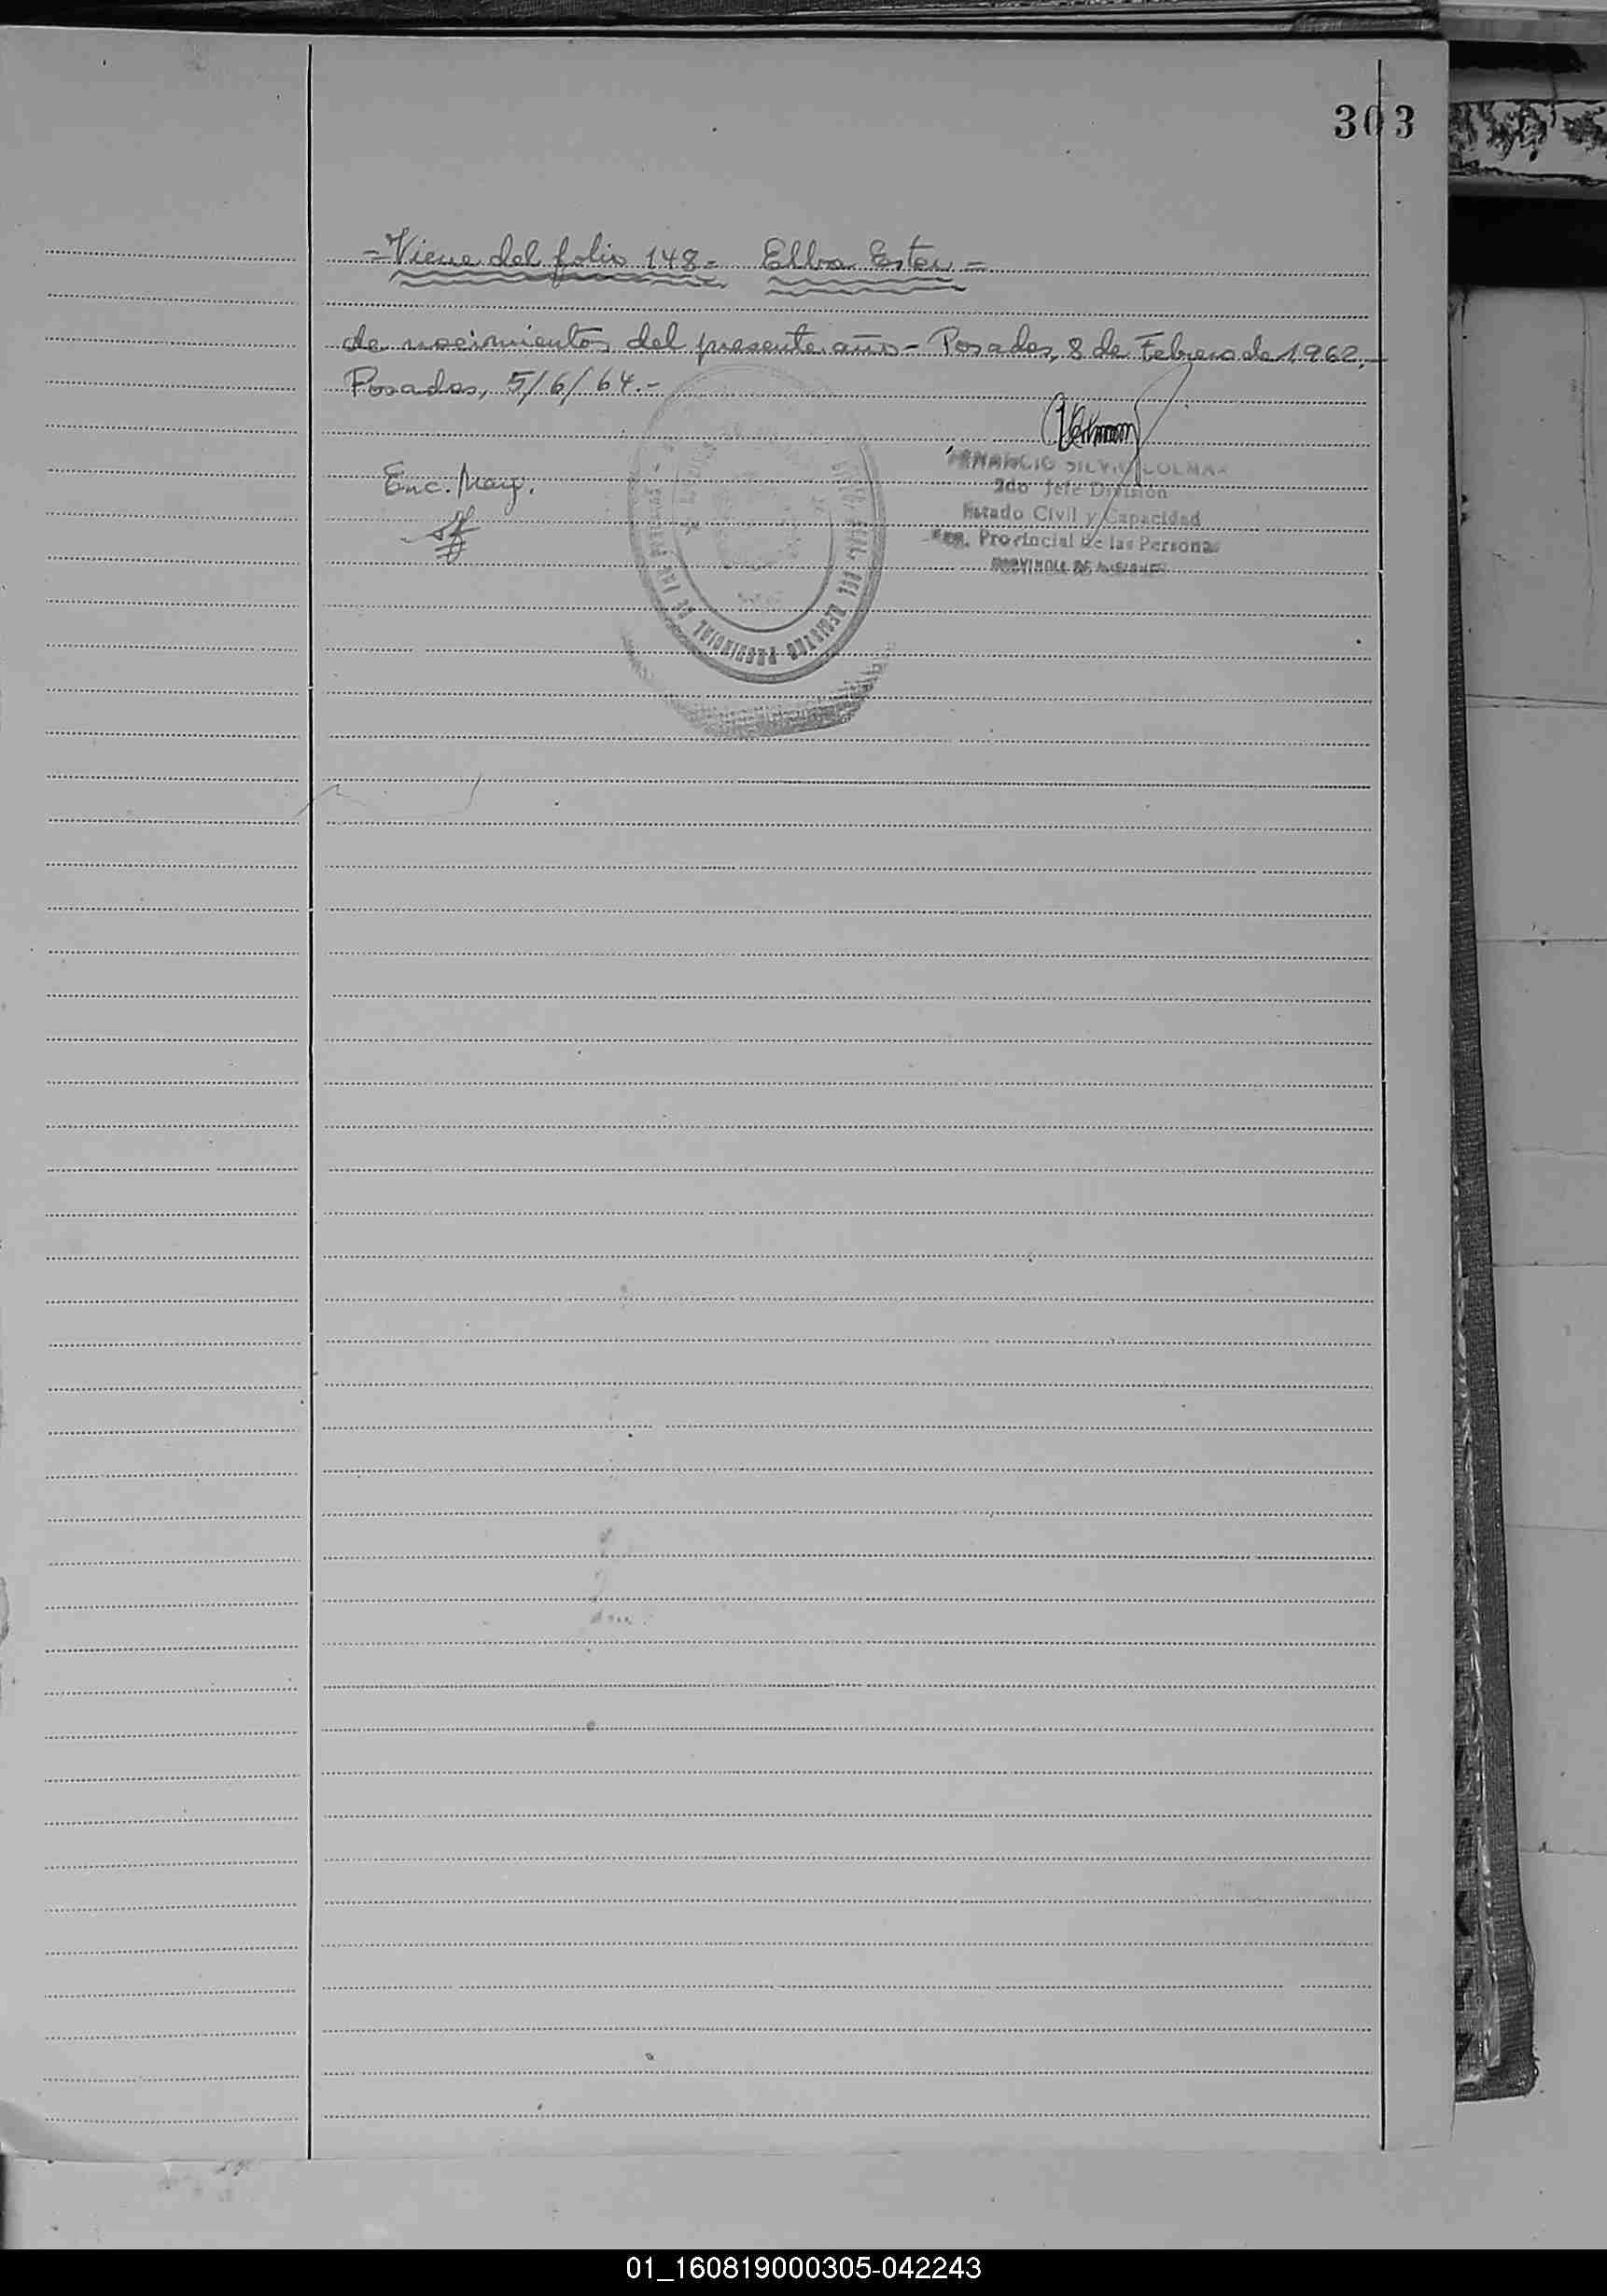 303
-Viene del folio 148- Elba Ester-
de nacimientos del presente año- Posadas, 8 de Febrero de 1962.-
Posadas, 5/6/64.-
Enc. Marg.
2do Jefe División
Estado Civil y Capacidad
Reg. Provincial de las Personas
PROVINCIA DE MISIONES
01_160819000305-042243